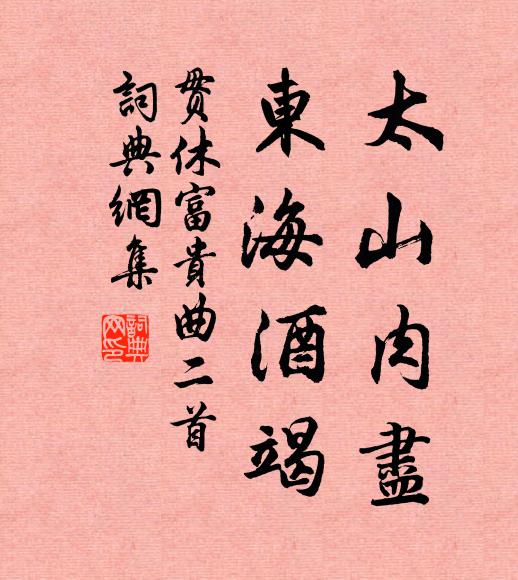 太山肉盡
東海酒竭
貫休富貴曲二首
詞典網集
詞典網印